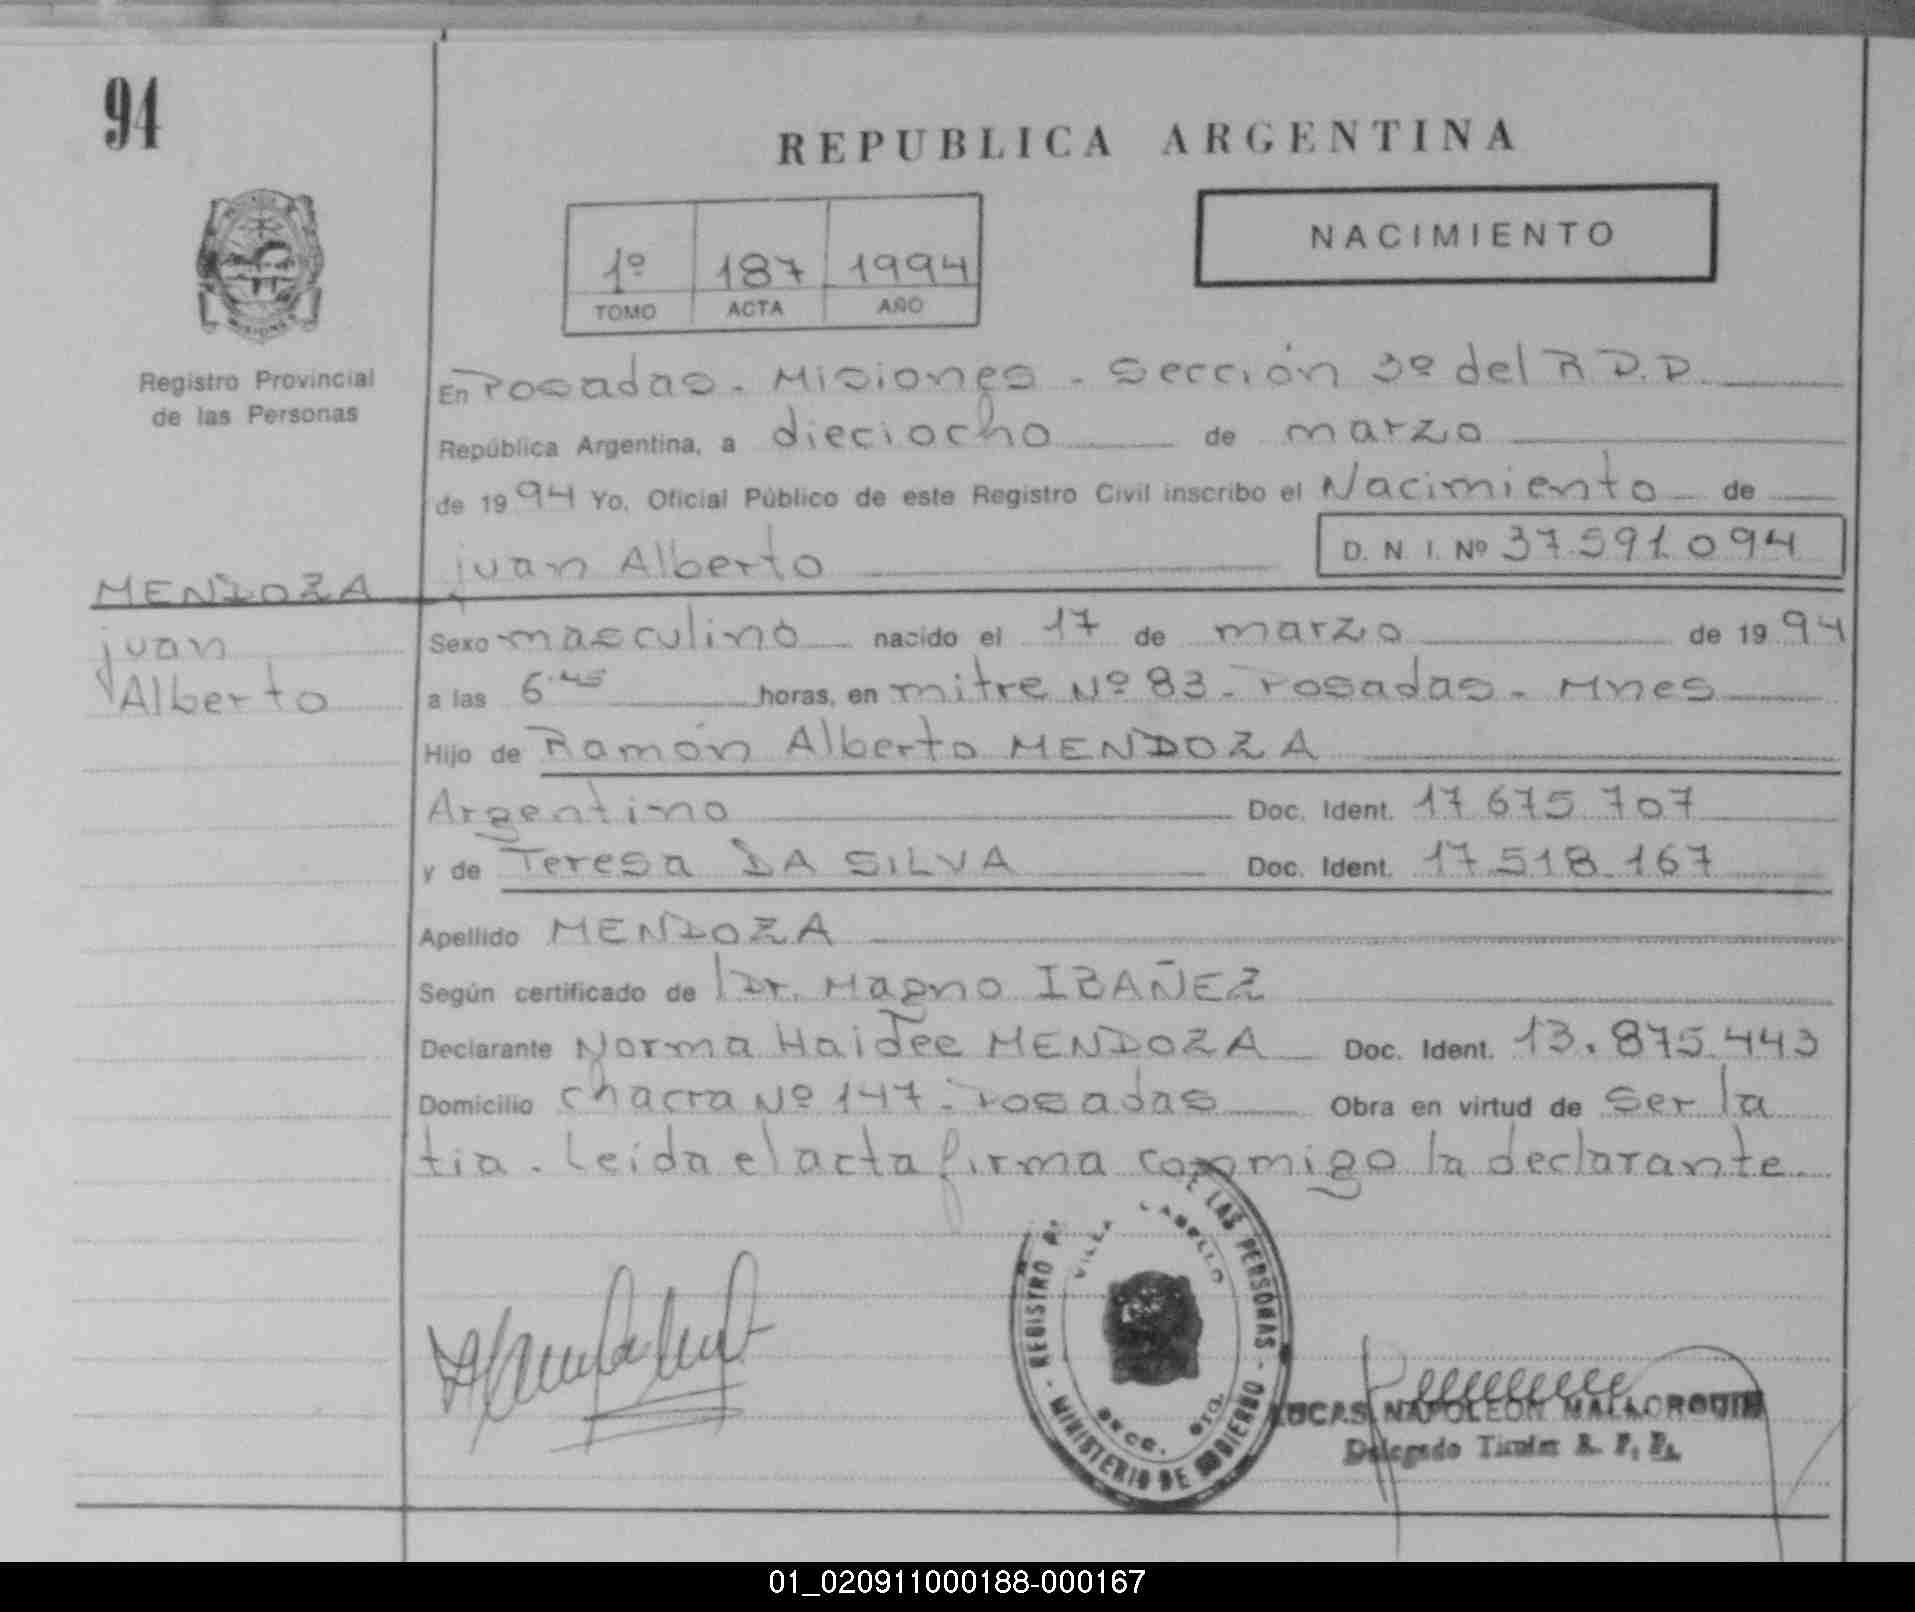 94
REPUBLICA ARGENTINA
NACIMIENTO
1º 187 1994
TOMO ACTA AÑO
MISIONES
Registro Provincial
de las Personas
En Posadas - Misiones - Sección 3º del R.P.P.
República Argentina, a dieciocho de marzo
de 1994 Yo, Oficial Público de este Registro Civil inscribo el Nacimiento de
juan Alberto D. N. I. Nº 37.591.094
MENDOZA
juan
Alberto
Sexo masculino nacido el 17 de marzo de 1994
a las 6.45 horas, en mitre Nº 83 - Posadas - Mnes
Hijo de Ramón Alberto MENDOZA
Argentino Doc. Ident. 17.675.707
y de Teresa DA SILVA Doc. Ident. 17.518.167
Apellido MENDOZA
Según certificado de Dr. Magno IBAÑEZ
Declarante Norma Haidee MENDOZA Doc. Ident. 13.875.443
Domicilio chacra Nº 147 - Posadas Obra en virtud de ser la
tia. Leida el acta firma conmigo la declarante.
REGISTRO DE LAS PERSONAS - MINISTERIO DE GOBIERNO -
VILLA CABELLO
LUCAS NAPOLEON
Delegado Titular R. P. P.
01_020911000188-000167